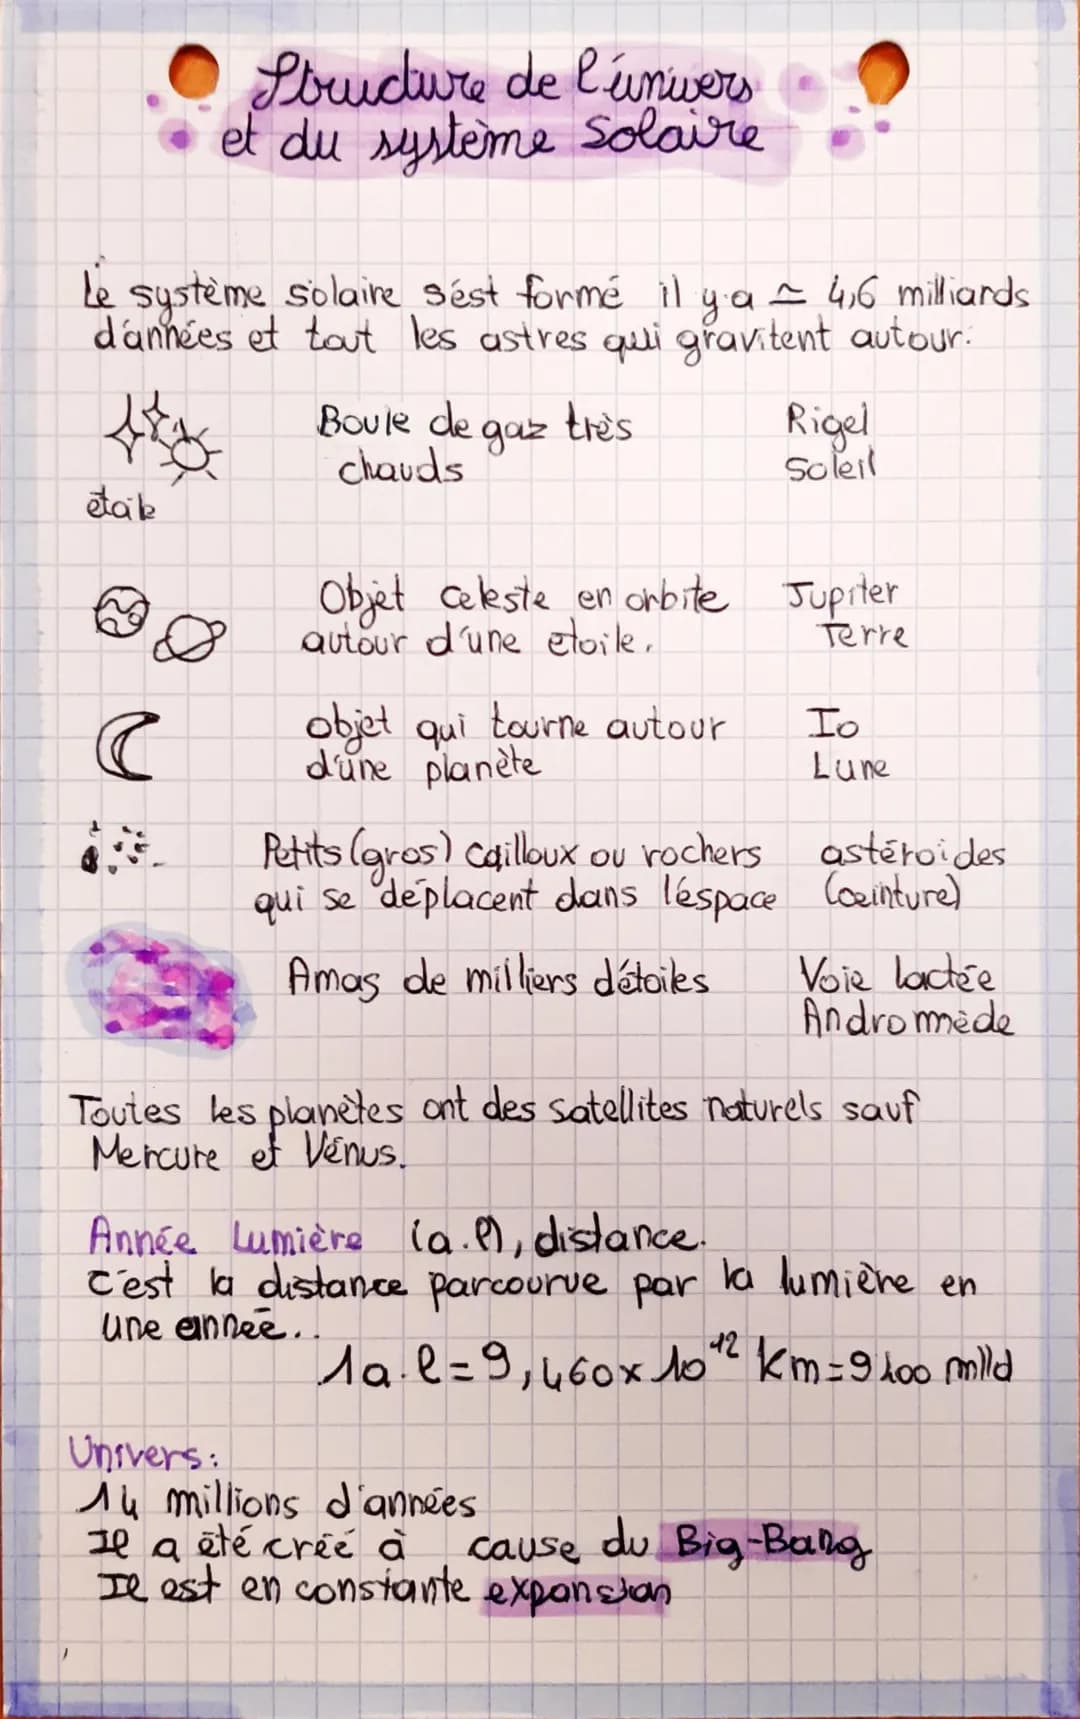 Structure de l'univers
et du système Solaire
Le système solaire s'est formé il y a ≃ 4,6 milliards
d'années et tout les astres qui gravitent autour.
Boule de gaz très
chauds
Rigel
Soleil
étoile
Objet celeste en orbite
autour d'une etoile.
Jupiter
Terre
objet qui tourne autour
d'une planète
Io
Lune
Petits (gros) cailloux ou rochers
qui se déplacent dans l'espace
astéroides
(ceinture)
Amas de milliers d'étoiles
Voie lactée
Andromède
Toutes les planètes ont des satellites naturels sauf
Mercure et Vénus.
Année Lumière (a.l), distance.
c'est la distance parcourue par la lumière en
une année..
1a.l=9,460x10¹² km=9400 mlld
Univers:
14 millions d'années
Il a été créé à cause du Big-Bang
Il est en constante expansion